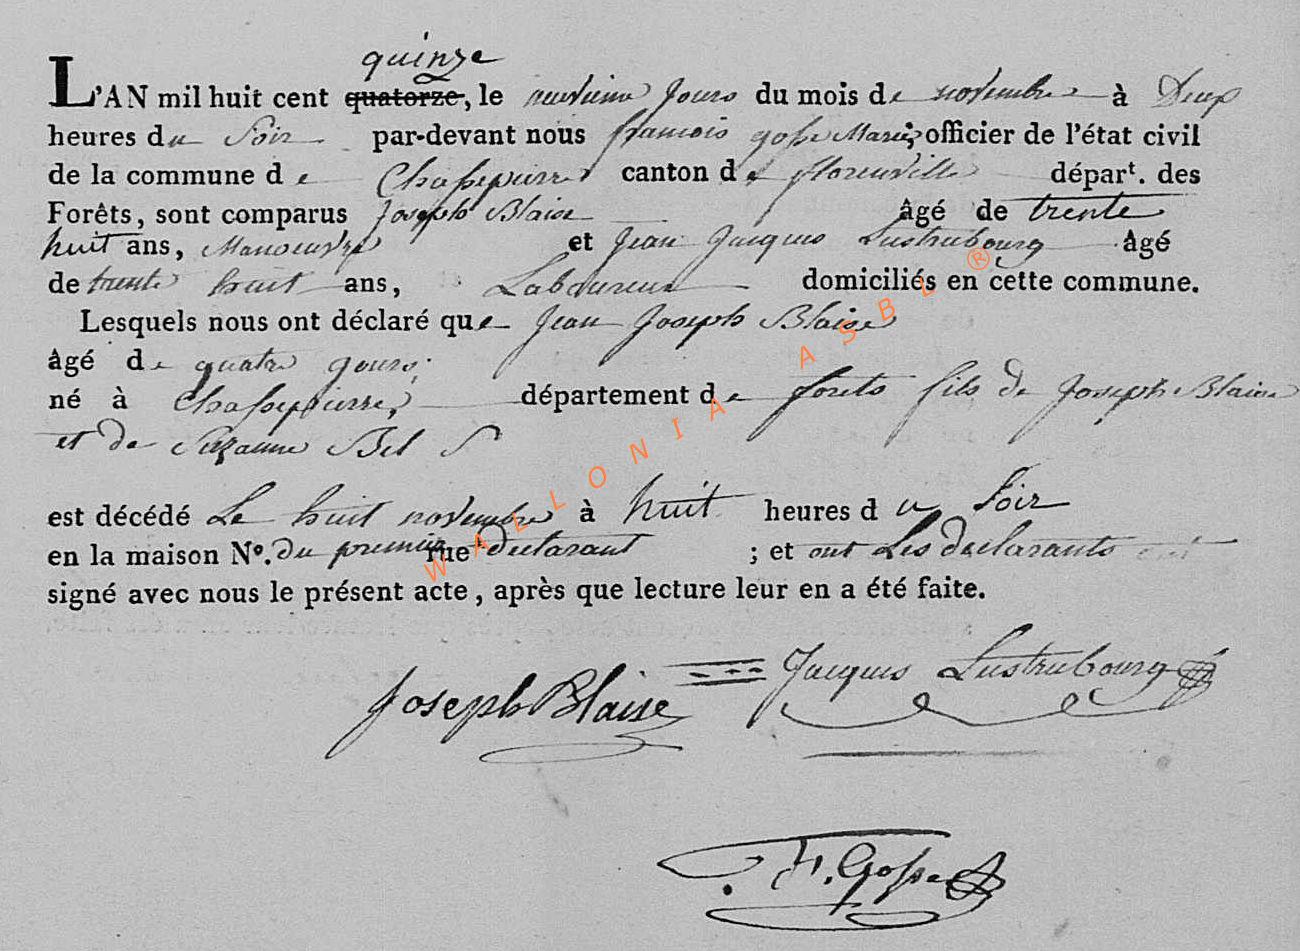 quinze
L'AN mil huit cent quatorze, le neuvieme Jours du mois de novembre à Deux
heures du Soir par-devant nous francois gosse Maire, officier de l'état civil
de la commune de Chassepierre canton de florenville départ. des
Forêts, sont comparus Joseph Blaise âgé de trente
huit ans, Manoeuvre et Jean Jacques Lustrubourg âgé
de trente huit ans, Laboureur domiciliés en cette commune.
Lesquels nous ont déclaré que Jean Joseph Blaise
âgé de quatre gours,
né à Chassepierre, département de forets fils de Joseph Blaise
et de Suzanne Bel
est décédé Le huit novembre à huit heures du Soir
en la maison N°. du premier rue declarant ; et ont Les declarants
signé avec nous le présent acte, après que lecture leur en a été faite.
Joseph Blaise Jacques Lustrubourg
F. Gosse
WALLONIA ASBL ®